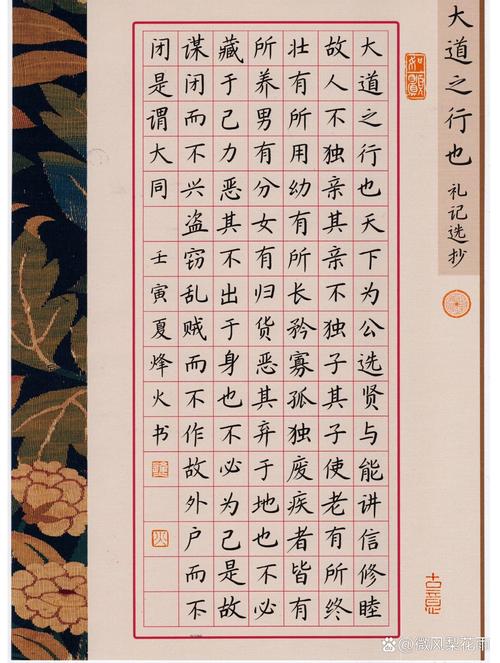 大道之行也
礼记选抄
大道之行也天下为公选贤与能讲信修睦
故人不独亲其亲不独子其子使老有所终
壮有所用幼有所长矜寡孤独废疾者皆有
所养男有分女有归货恶其弃于地也不必
藏于己力恶其不出于身也不必为己是故
谋闭而不兴盗窃乱贼而不作故外户而不
闭是谓大同 壬寅夏烽火书
古意
@微风梨花雨